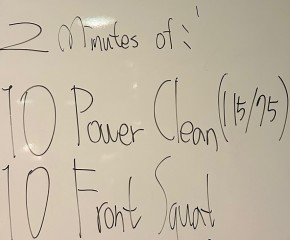 2 Minutes of:
10 Power Clean (115/75)
10 Front Squat